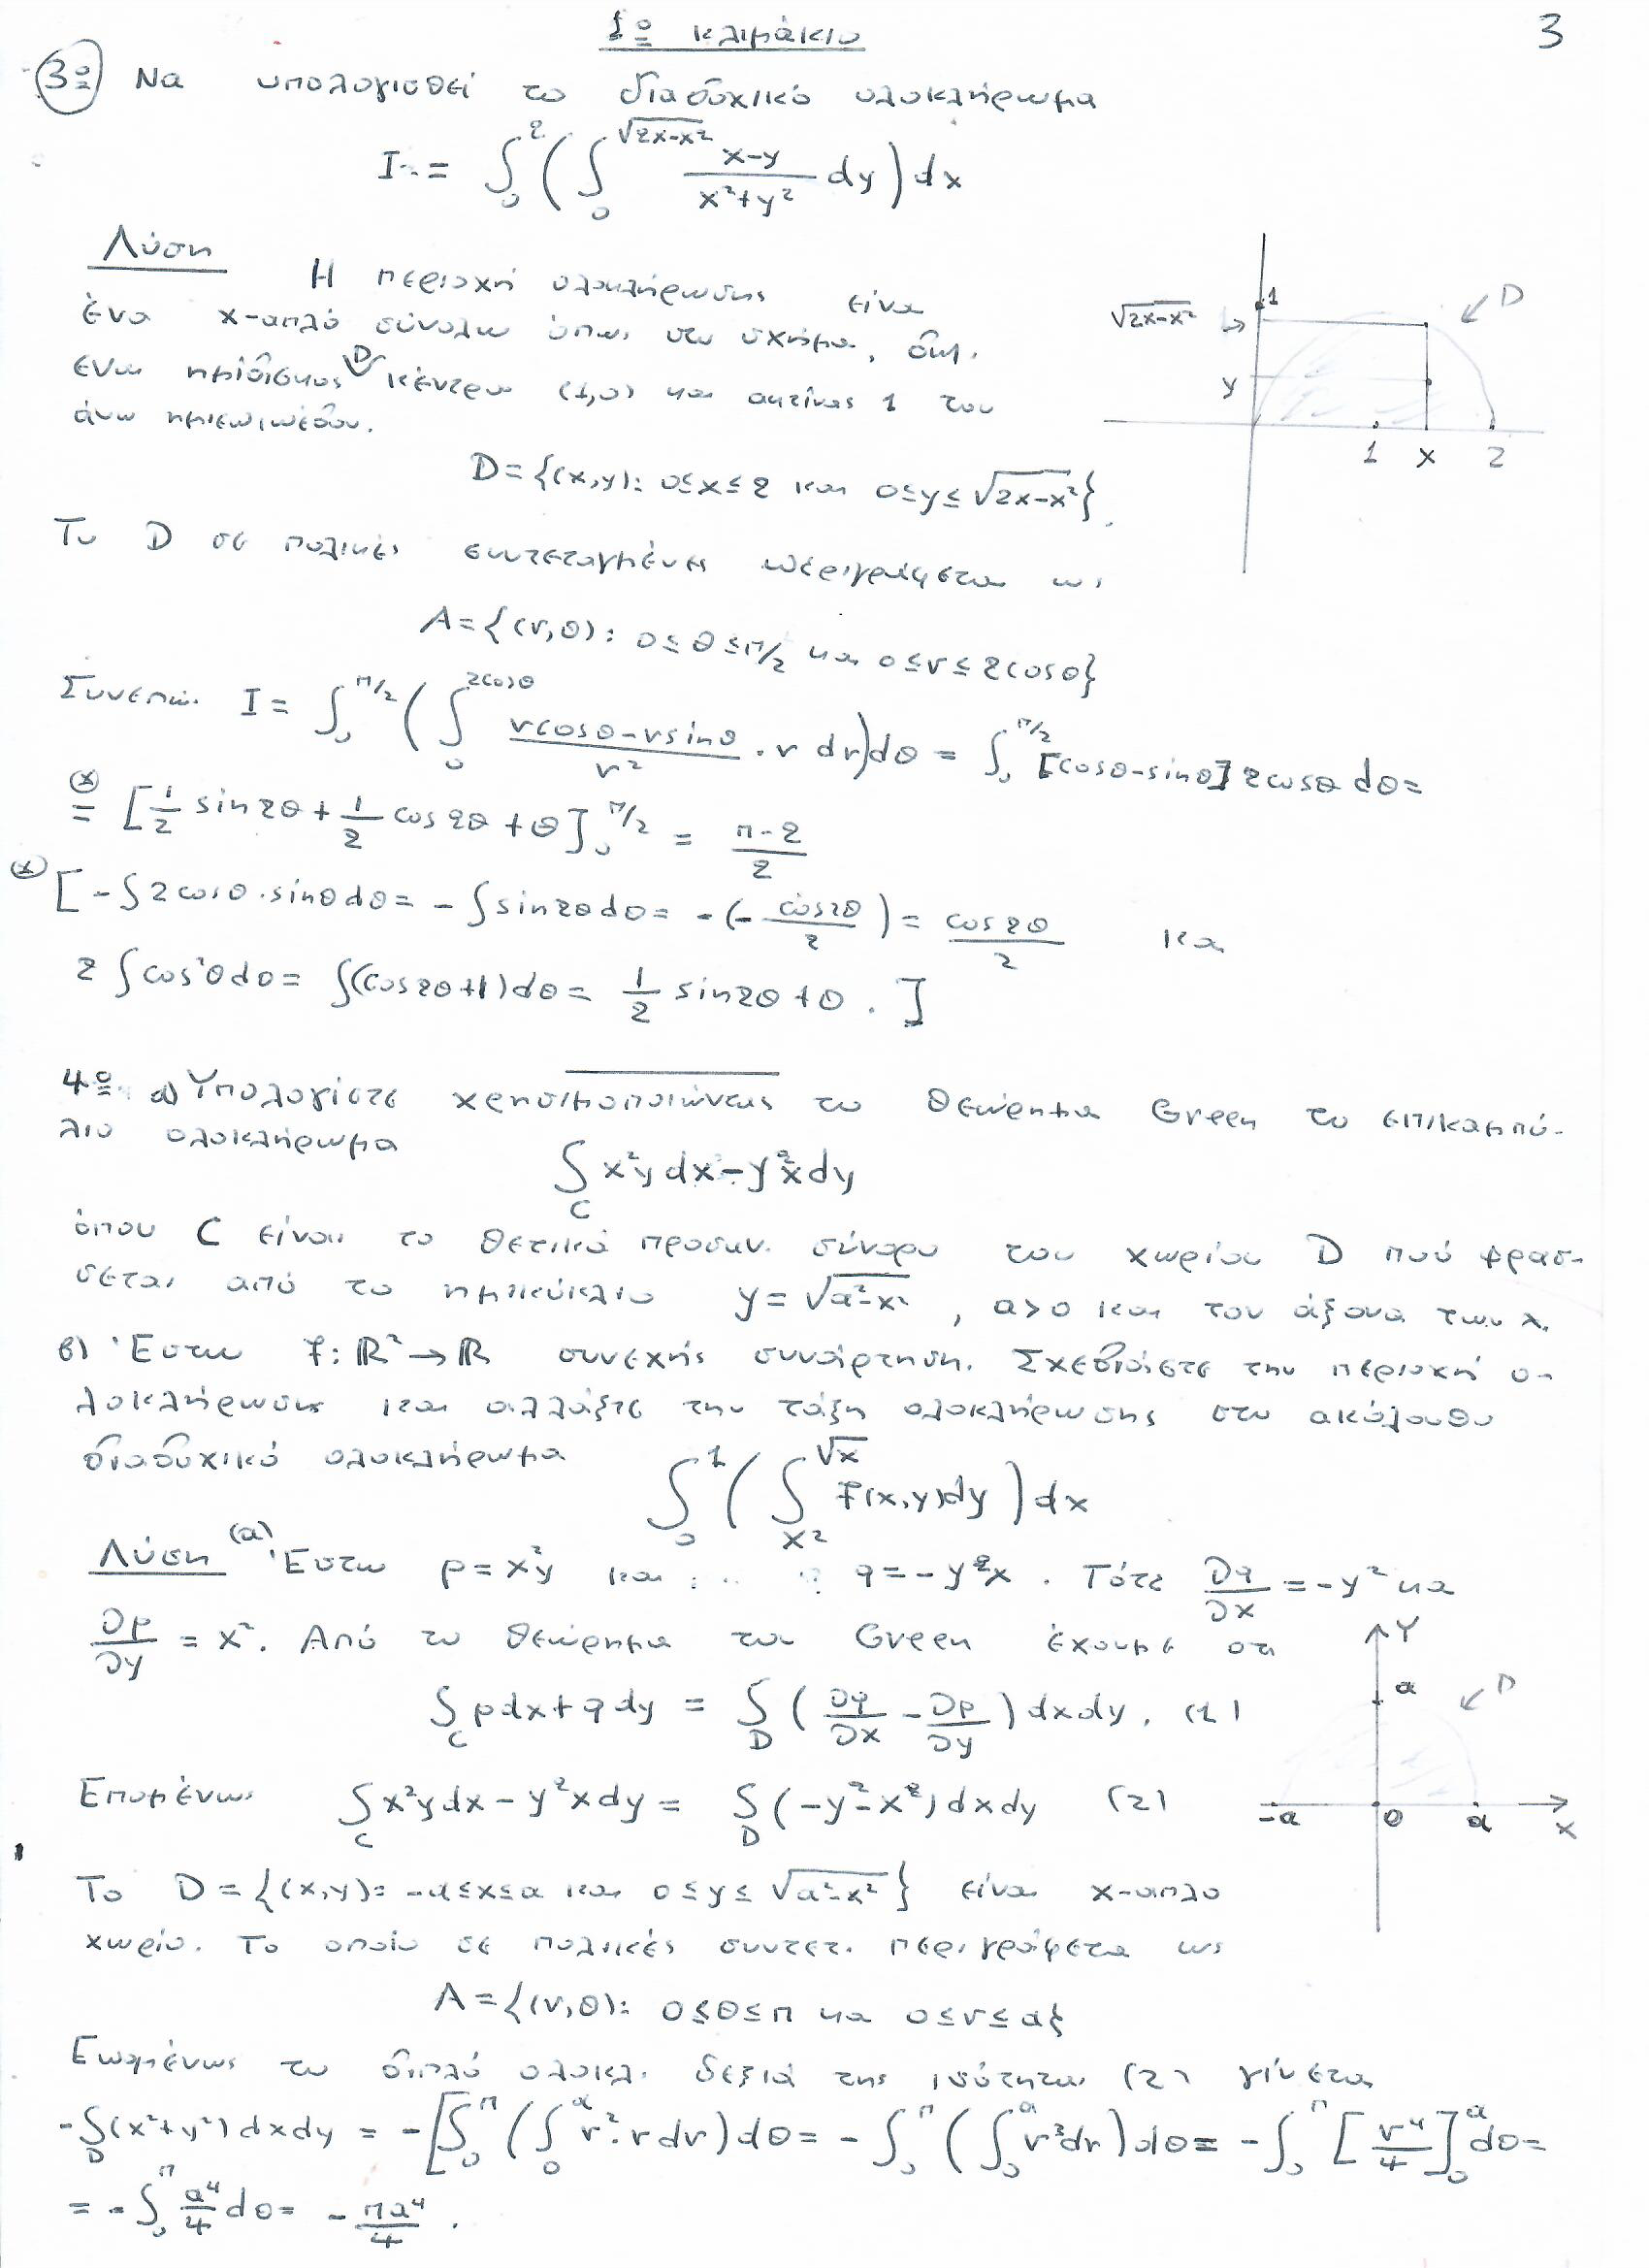 1º κλιμάκιο 3
3º Να υπολογισθεί το διαδοχικό ολοκλήρωμα
I = ∫_0^2 ( ∫_0^{√(2x-x²)} (x-y)/(x²+y²) dy ) dx
Λύση Η περιοχή ολοκλήρωσης είναι
ένα x-απλό σύνολο όπως στο σχήμα, δηλ.
ένας ημίδισκος D κέντρου (1,0) και ακτίνας 1 του
άνω ημιεπιπέδου.
√(2x-x²) 1 D
y
1 x 2
D={(x,y): 0≤x≤2 και 0≤y≤√(2x-x²)}.
Το D σε πολικές συντεταγμένες περιγράφεται ως
A={(r,θ): 0≤θ≤π/2 και 0≤r≤2cosθ}
Συνεπώς I = ∫_0^{π/2} ( ∫_0^{2cosθ} (rcosθ-rsinθ)/r² · r dr)dθ = ∫_0^{π/2} [cosθ-sinθ] 2cosθ dθ=
(*) = [1/2 sin2θ + 1/2 cos2θ + θ]_0^{π/2} = (π-2)/2
(*) [ -∫2cosθ·sinθdθ = -∫sin2θdθ = -(-cos2θ/2) = cos2θ/2 και
2∫cos²θdθ = ∫(cos2θ+1)dθ = 1/2 sin2θ+θ . ]
4º α) Υπολογίστε χρησιμοποιώντας το θεώρημα Green το επικαμπύ-
λιο ολοκλήρωμα
∫_C x²y dx - y²x dy
όπου C είναι το θετικά προσαν. σύνορο του χωρίου D πού φράσ-
σεται από το ημικύκλιο y=√(a²-x²), a>0 και τον άξονα των x.
β) Έστω f: ℝ²→ℝ συνεχής συνάρτηση. Σχεδιάστε την περιοχή ο-
λοκλήρωσης και αλλάξτε την τάξη ολοκλήρωσης στο ακόλουθο
διαδοχικό ολοκλήρωμα ∫_0^1 ( ∫_{x²}^{√x} f(x,y)dy ) dx
Λύση (α) Έστω p=x²y και q=-y²x. Τότε ∂q/∂x = -y² και
∂p/∂y = x². Από το θεώρημα του Green έχουμε οτι
∫_C pdx+qdy = ∫_D (∂q/∂x - ∂p/∂y) dxdy. (1)
Επομένως ∫_C x²ydx - y²xdy = ∫_D (-y²-x²) dxdy (2)
Y
a D
-a 0 a x
Το D={(x,y): -a≤x≤a και 0≤y≤√(a²-x²)} είναι x-απλο
χωρίο. Το οποίο σε πολικές συντετ. περιγράφεται ως
A={(r,θ): 0≤θ≤π και 0≤r≤a}
Επομένως το διπλό ολοκλ. δεξιά της ισότητας (2) γίνεται
-∫_D (x²+y²) dxdy = -[∫_0^π ( ∫_0^a r²·rdr)dθ = -∫_0^π ( ∫_0^a r³dr)dθ = -∫_0^π [r⁴/4]_0^a dθ=
= -∫_0^π a⁴/4 dθ = -πa⁴/4 .